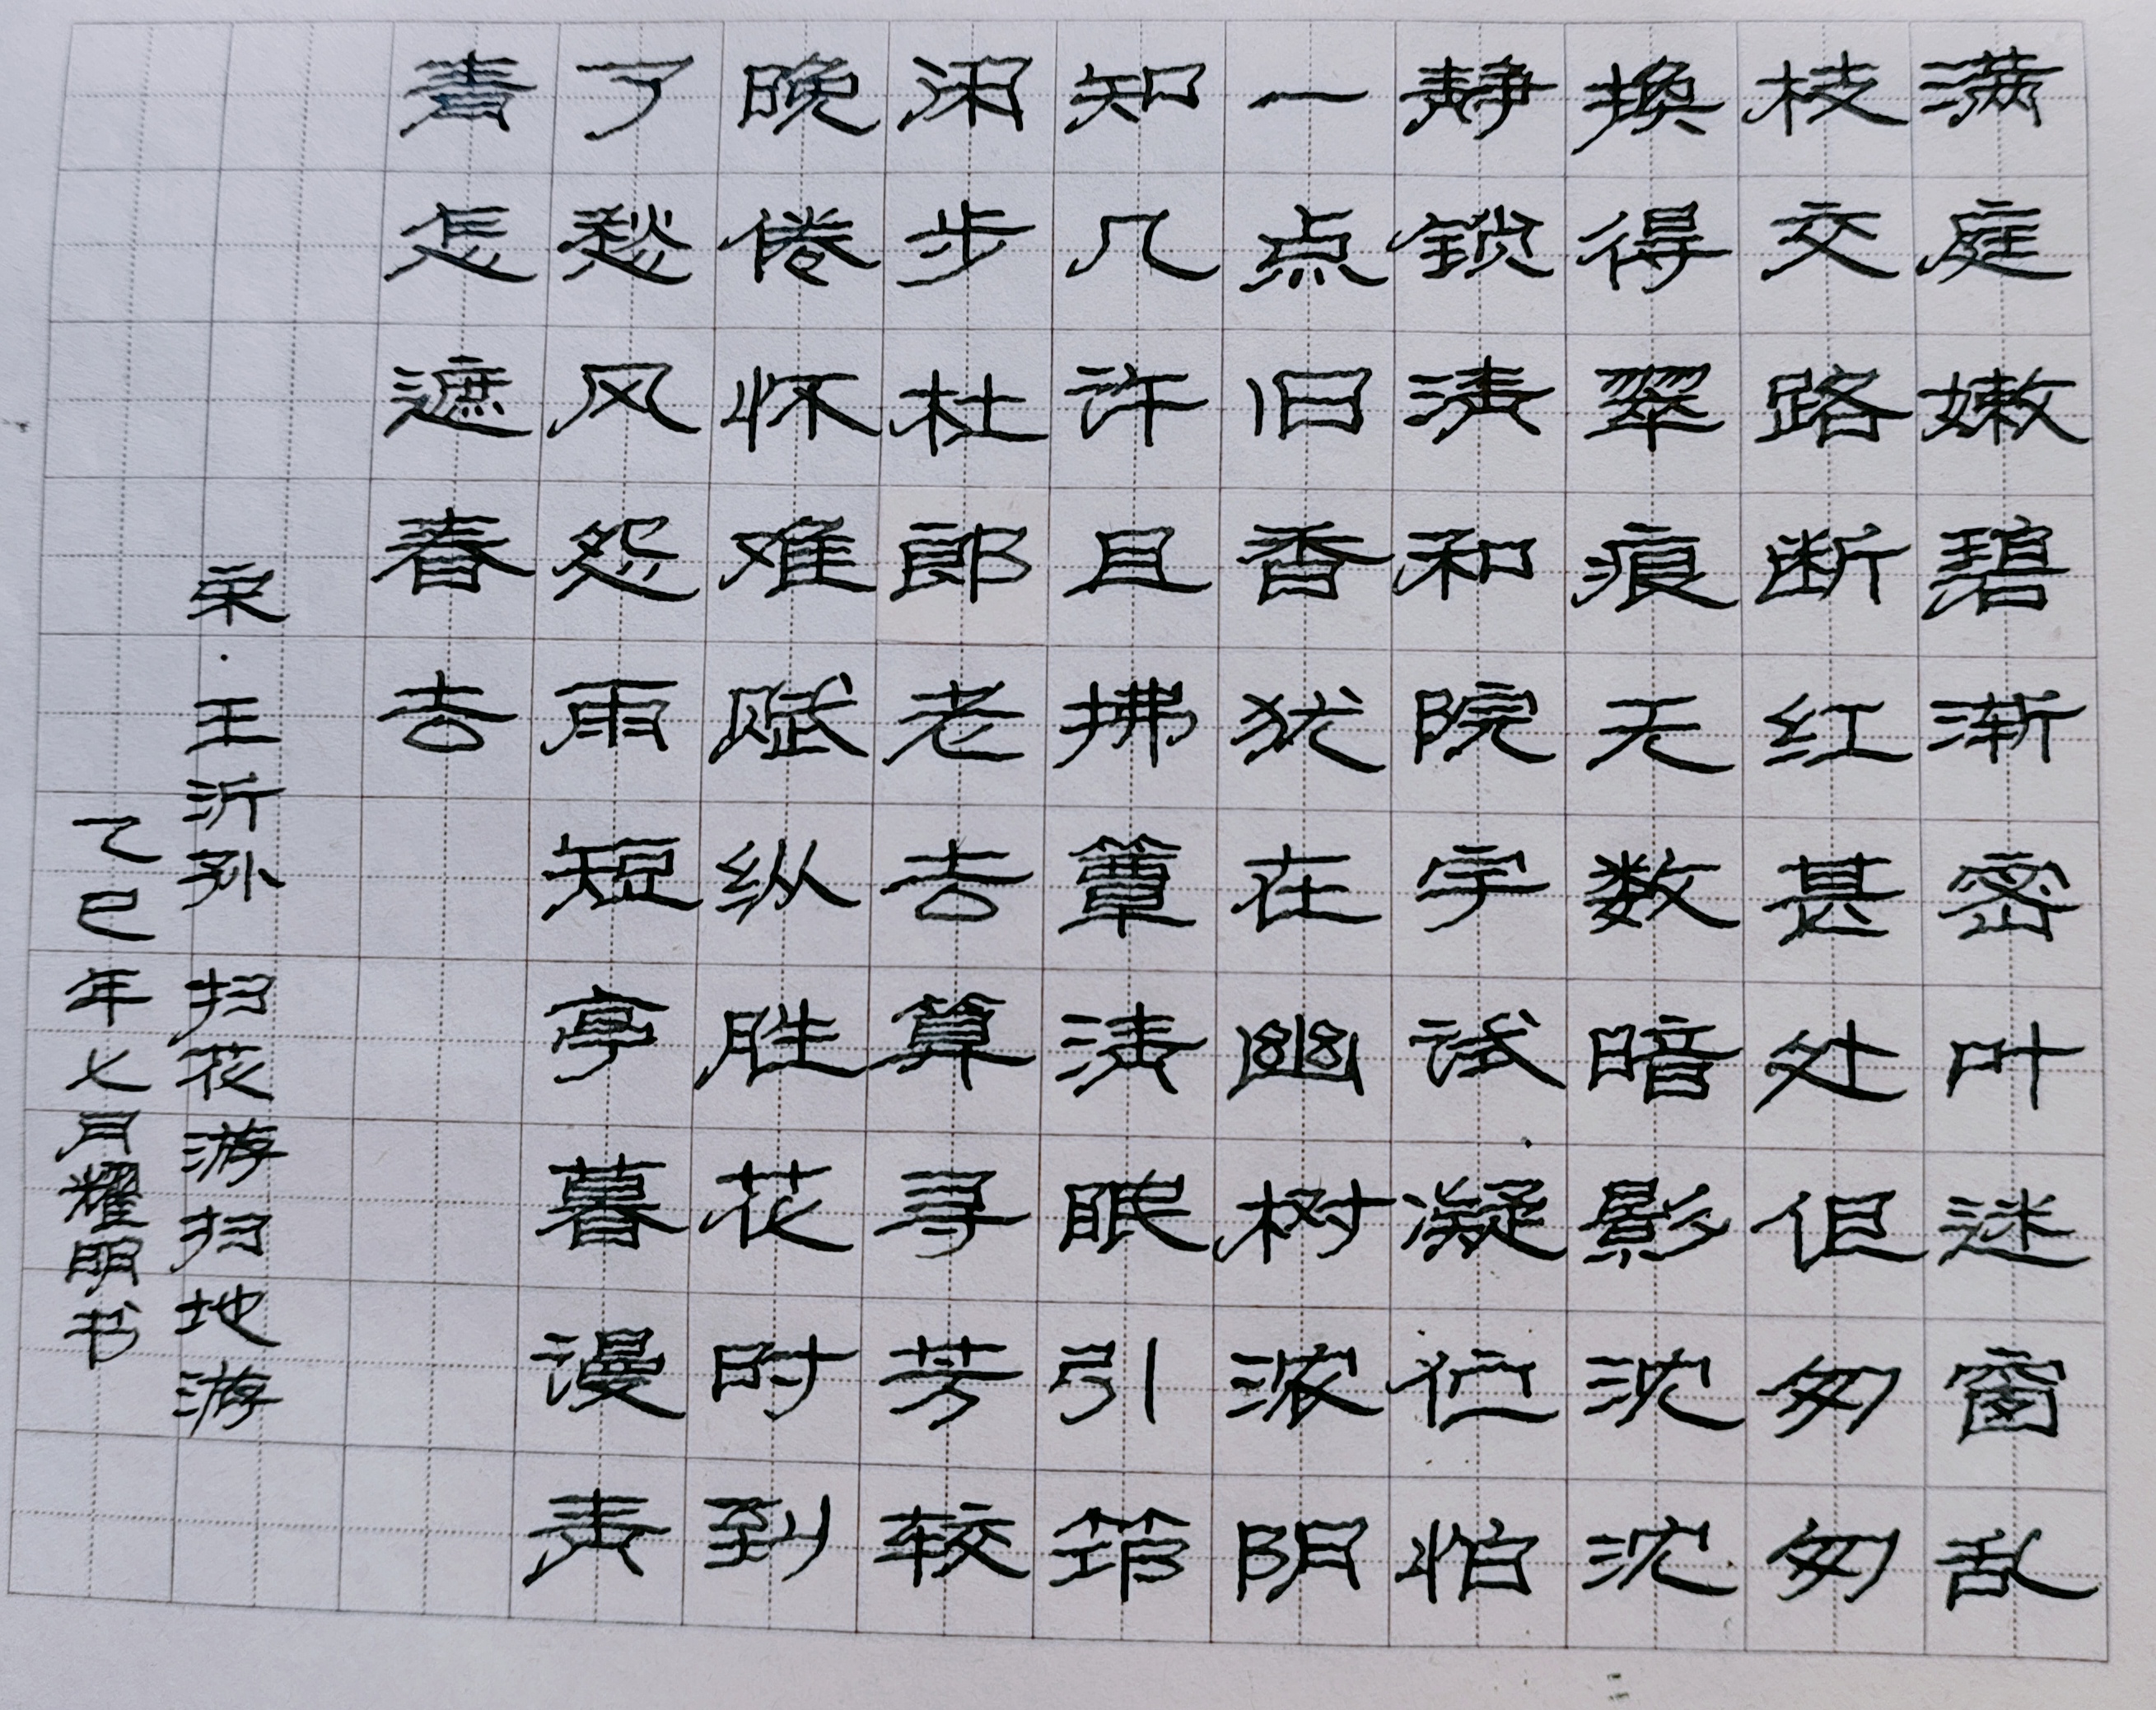 满庭嫩碧渐密叶迷窗乱
枝交路断红甚处但匆匆
换得翠痕无数暗影沈沈
静锁清和院宇试凝伫怕
一点旧香犹在幽树浓阴
知几许且拂簟清眠引筇
闲步杜郎老去算寻芳较
晚倦怀难赋纵胜花时到
了愁风怨雨短亭暮漫青
青怎遮春去
宋·王沂孙 扫花游扫地游
乙巳年七月耀明书